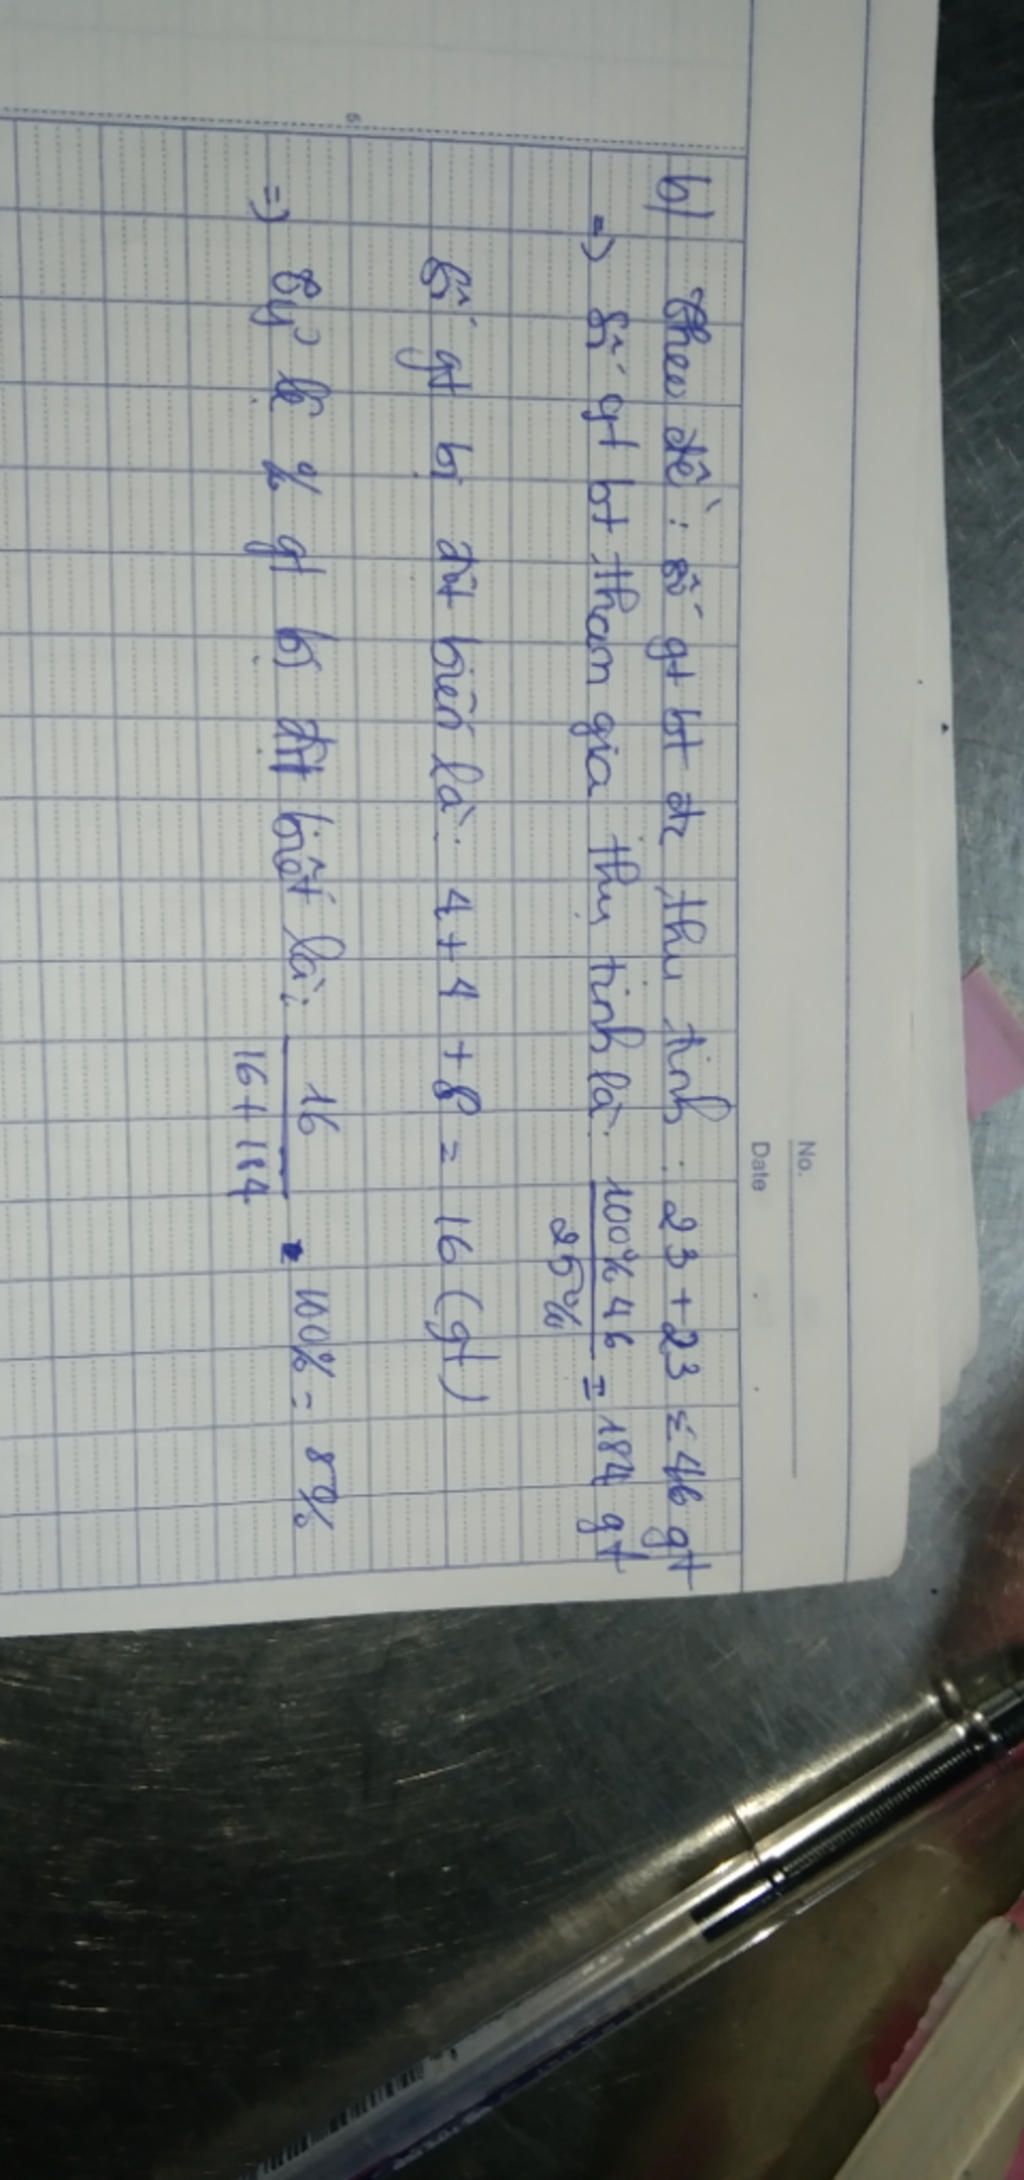 No.
Date
b) Theo đề: số gt bt đc thu tinh : 23 + 23 = 46 gt
=) Số gt bt tham gia thụ tinh là: 100% 46 / 25% = 184 gt
Số gt bị đột biến là: 4 + 4 + 8 = 16 (gt)
=) Tỷ lệ % gt bị đột biết là: 16 / 16 + 184 . 100% = 8%